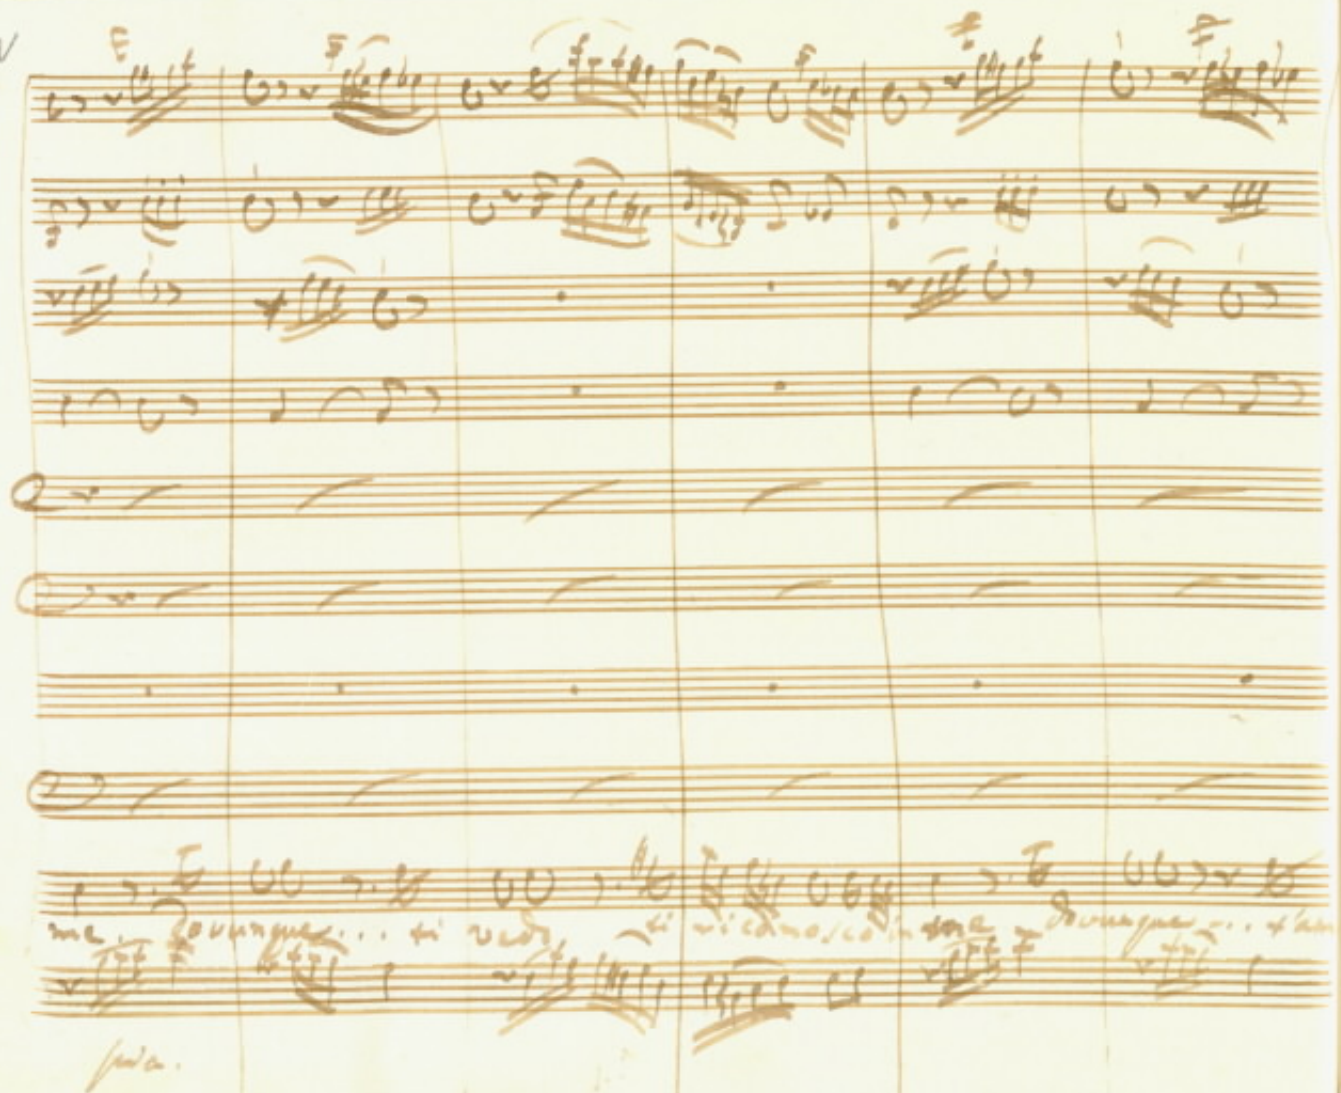 me. Dovunque... ti vedo, ti riconosco in me - Dovunque... t'am